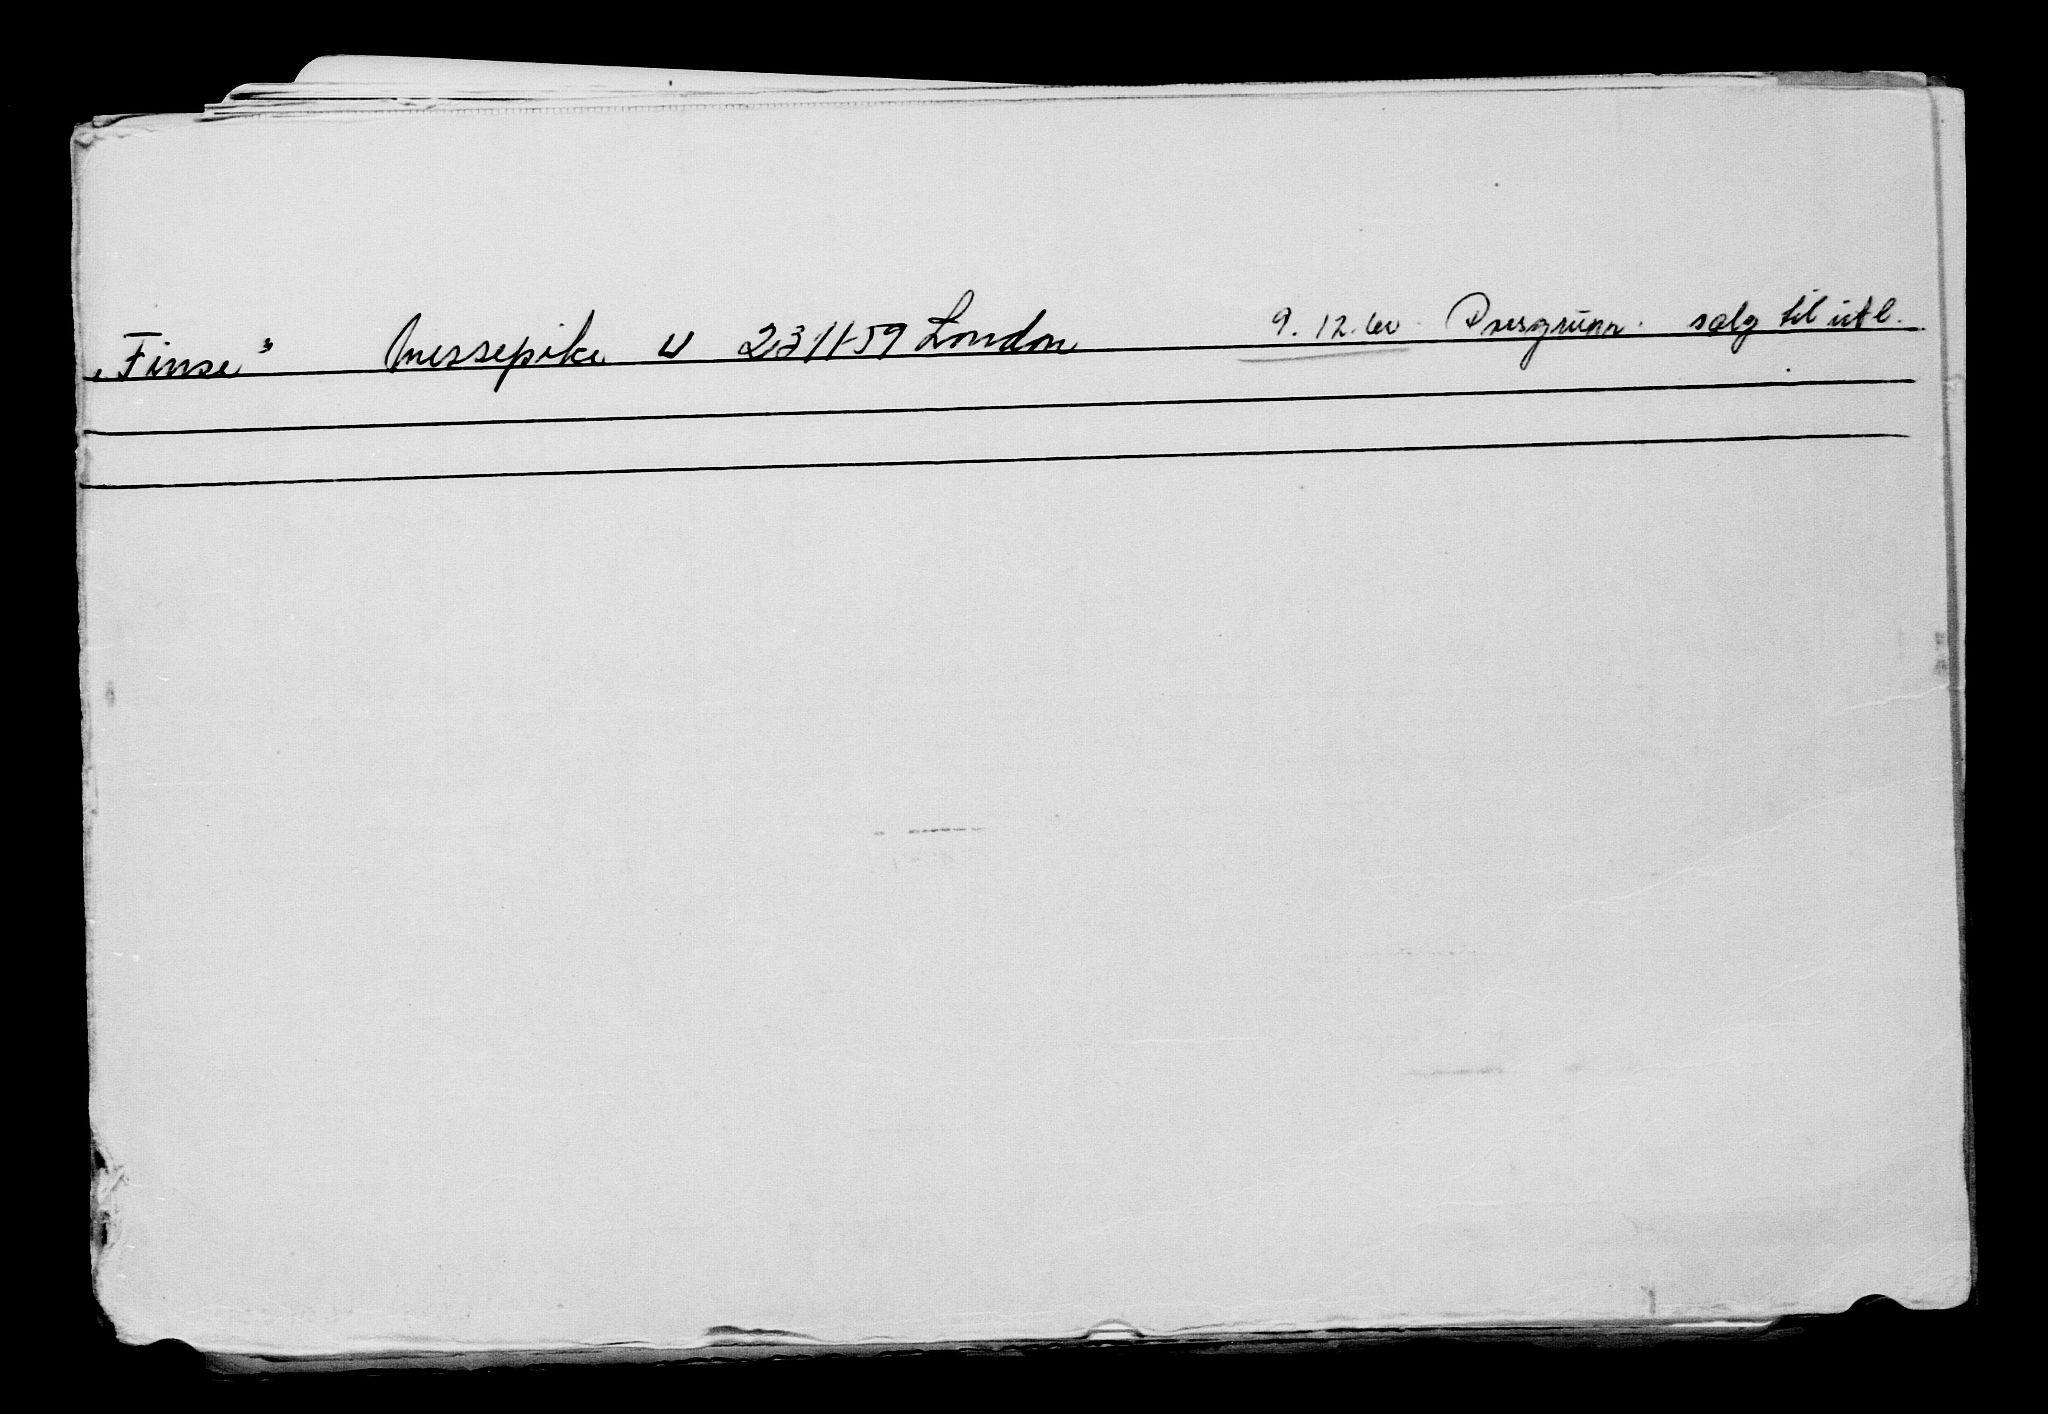 „Finse" Messepike u 23/11-59 London 9.12.60. Porsgrunn. salg til utl.